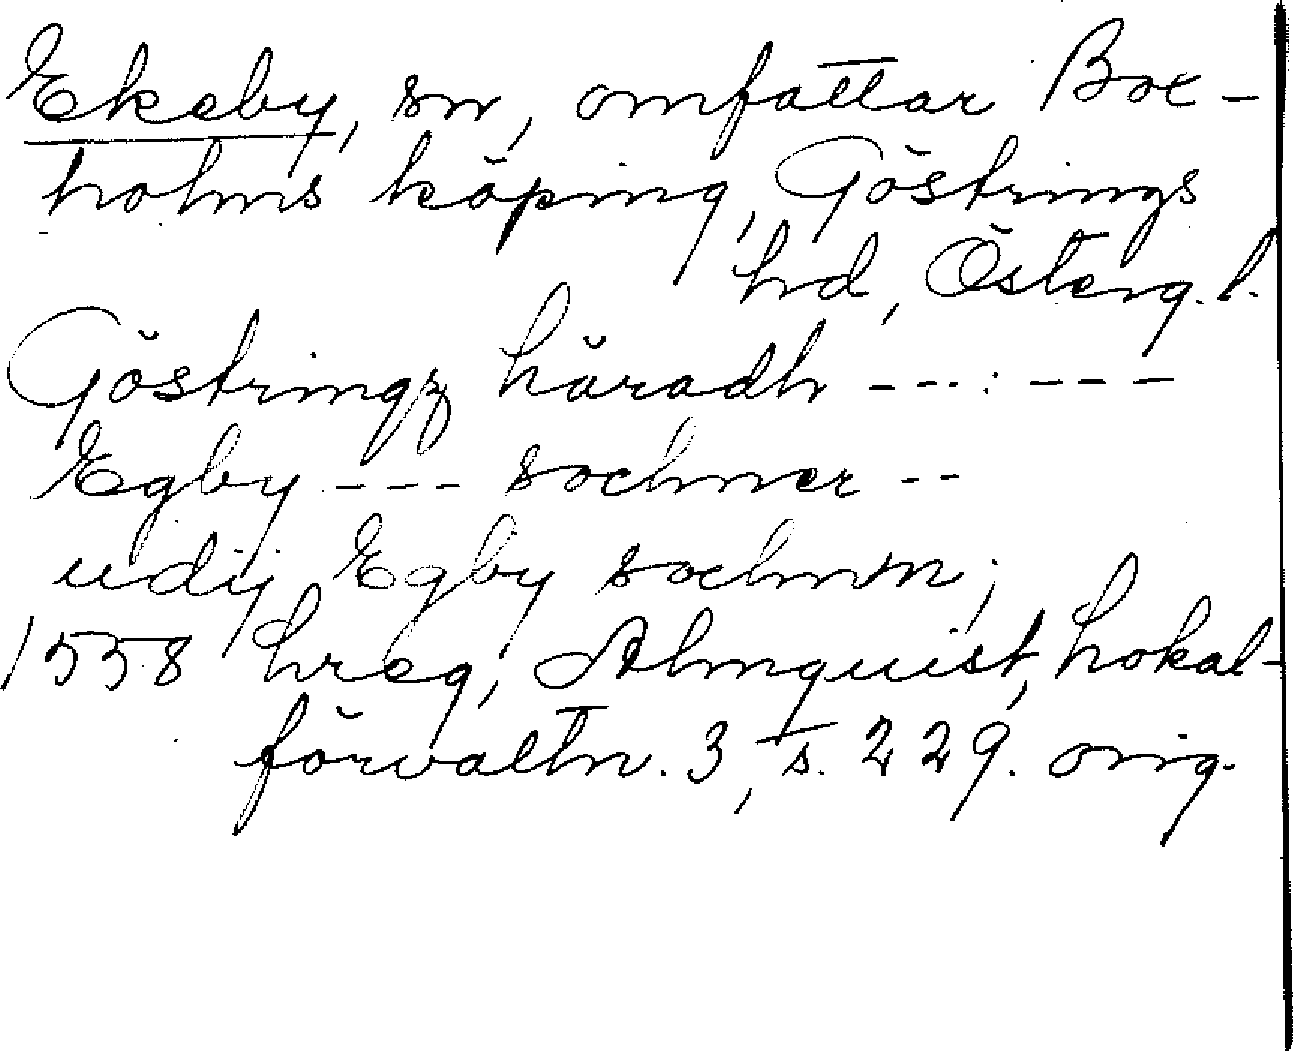 Ekeby, sn, omfattar Box-
holms köping, Göstrings
hd, Österg. l.
Göstringz häradh ---:---
Egby --- sochner --
udij Egby sochnn;
1558 hreg, Almquist, Lokal-
förvaltn. 3, s. 229. orig.